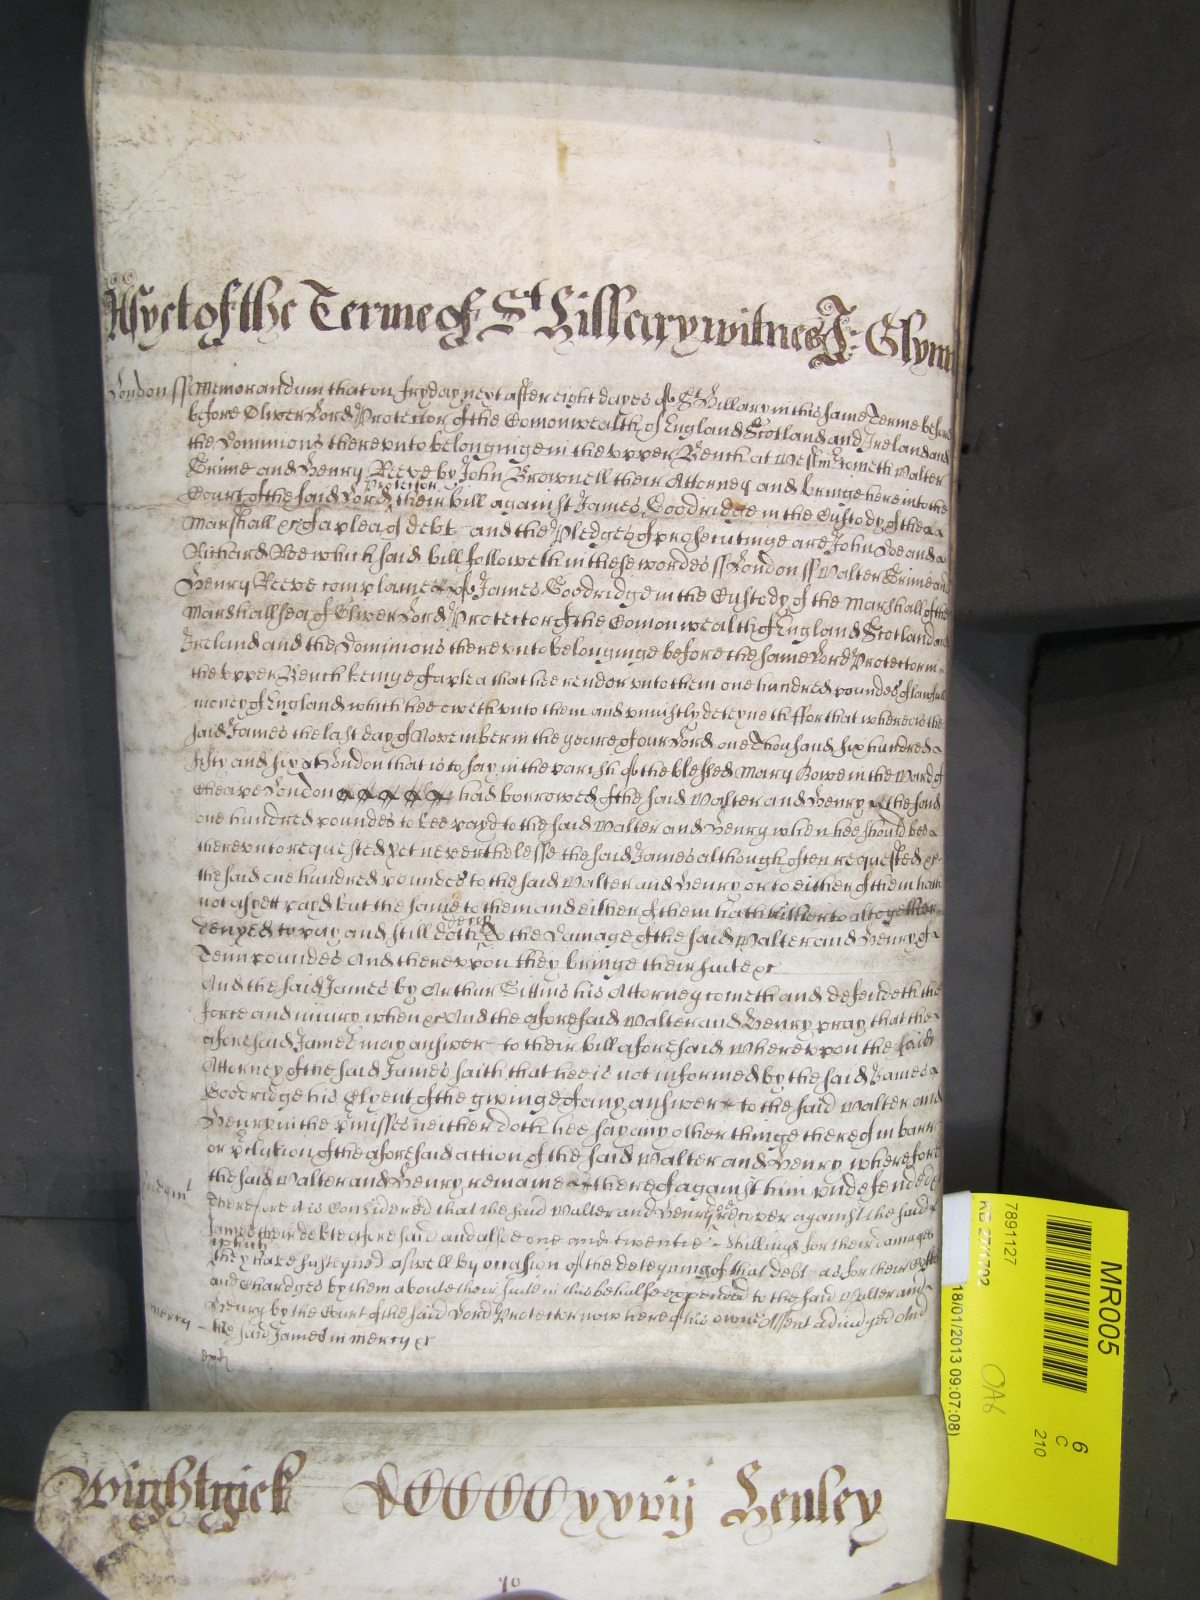 As yet of the Terme of St Hillary witnes J: Glynn
London ss Memorandum that on fryday next after eight dayes of St Hillary in this same Terme before
before Oliver Lord Protector of the Comonwealth of England Scotland and Ireland and
the Dominions thereunto belonginge in the upper Bench at Westmr cometh Walter
Grime and Henry Reeve by John Brownell their Attorney and bringe here into the
Court of the said Lord Protector their bill against James Goodridge in the Custody of the
Marshall &c of a plea of debt and the Pledges of prosecutinge are John Doe and
Richard Roe which said bill followeth in these wordes ss London ss Walter Grime and
Henry Reeve complaine of James Goodridge in the Custody of the Marshall of the
Marshallsea of Oliver Lord Protector of the Comonwealth of England Scotland and
Ireland and the Dominions thereunto belonginge before the same Lord Protector in
the upper Bench beinge of a plea that hee render unto them one hundred poundes of lawfull
money of England which hee oweth unto them and uniustly deteyneth ffor that whereas the
said James the last day of November in the yeare of our Lord one Thousand six hundred
fifty and six at London that is to say in the parish of the blessed Mary Bowe in the Ward of
Cheape London had borrowed of the said Walter and Henry the said
one hundred poundes to bee payd to the said Walter and Henry when hee should bee
thereunto requested yet neverthelesse the said James although often requested &c
the said one hundred poundes to the said Walter and Henry or to either of them hath
not as yett payd but the same to them and either of them hath hitherto altogether
denyed to pay and still doth deny to the Damage of the said Walter and Henry of
Tenn poundes And thereupon they bringe their suite &c
And the said James by Arthur Gittins his Attorney cometh and defendeth the
force and iniury when &c And the aforesaid Walter and Henry pray that the
aforesaid James may answer to their bill aforesaid Whereupon the said
Attorney of the said James saith that hee is not informed by the said James
Goodridge his Clyent of the givinge of any answer to the said Walter and
Henry in the pmisses neither doth hee say any other thinge thereof in barr
or of the aforesaid action of the said Walter and Henry wherefore
the said Walter and Henry remaine thereof against him undefended
Therefore it is Considered that the said Walter and Henry recover against the said
James their debt aforesaid and alsoe one and twentie Shillings for their damages
which they have susteyned aswell by occasion of the deteyning of that debt as for their Costs
and Chardges by them aboute their suite in this behalfe expended to the said Walter and
Henry by the Court of the said Lord Protector now here of his owne Assent adiudged And
mercy the said James in mercy &c
Wightwick xxvij Henley
MR005
6
C
210
7891127
KB 27/1792
18/01/2013 09:07:08)
OA6